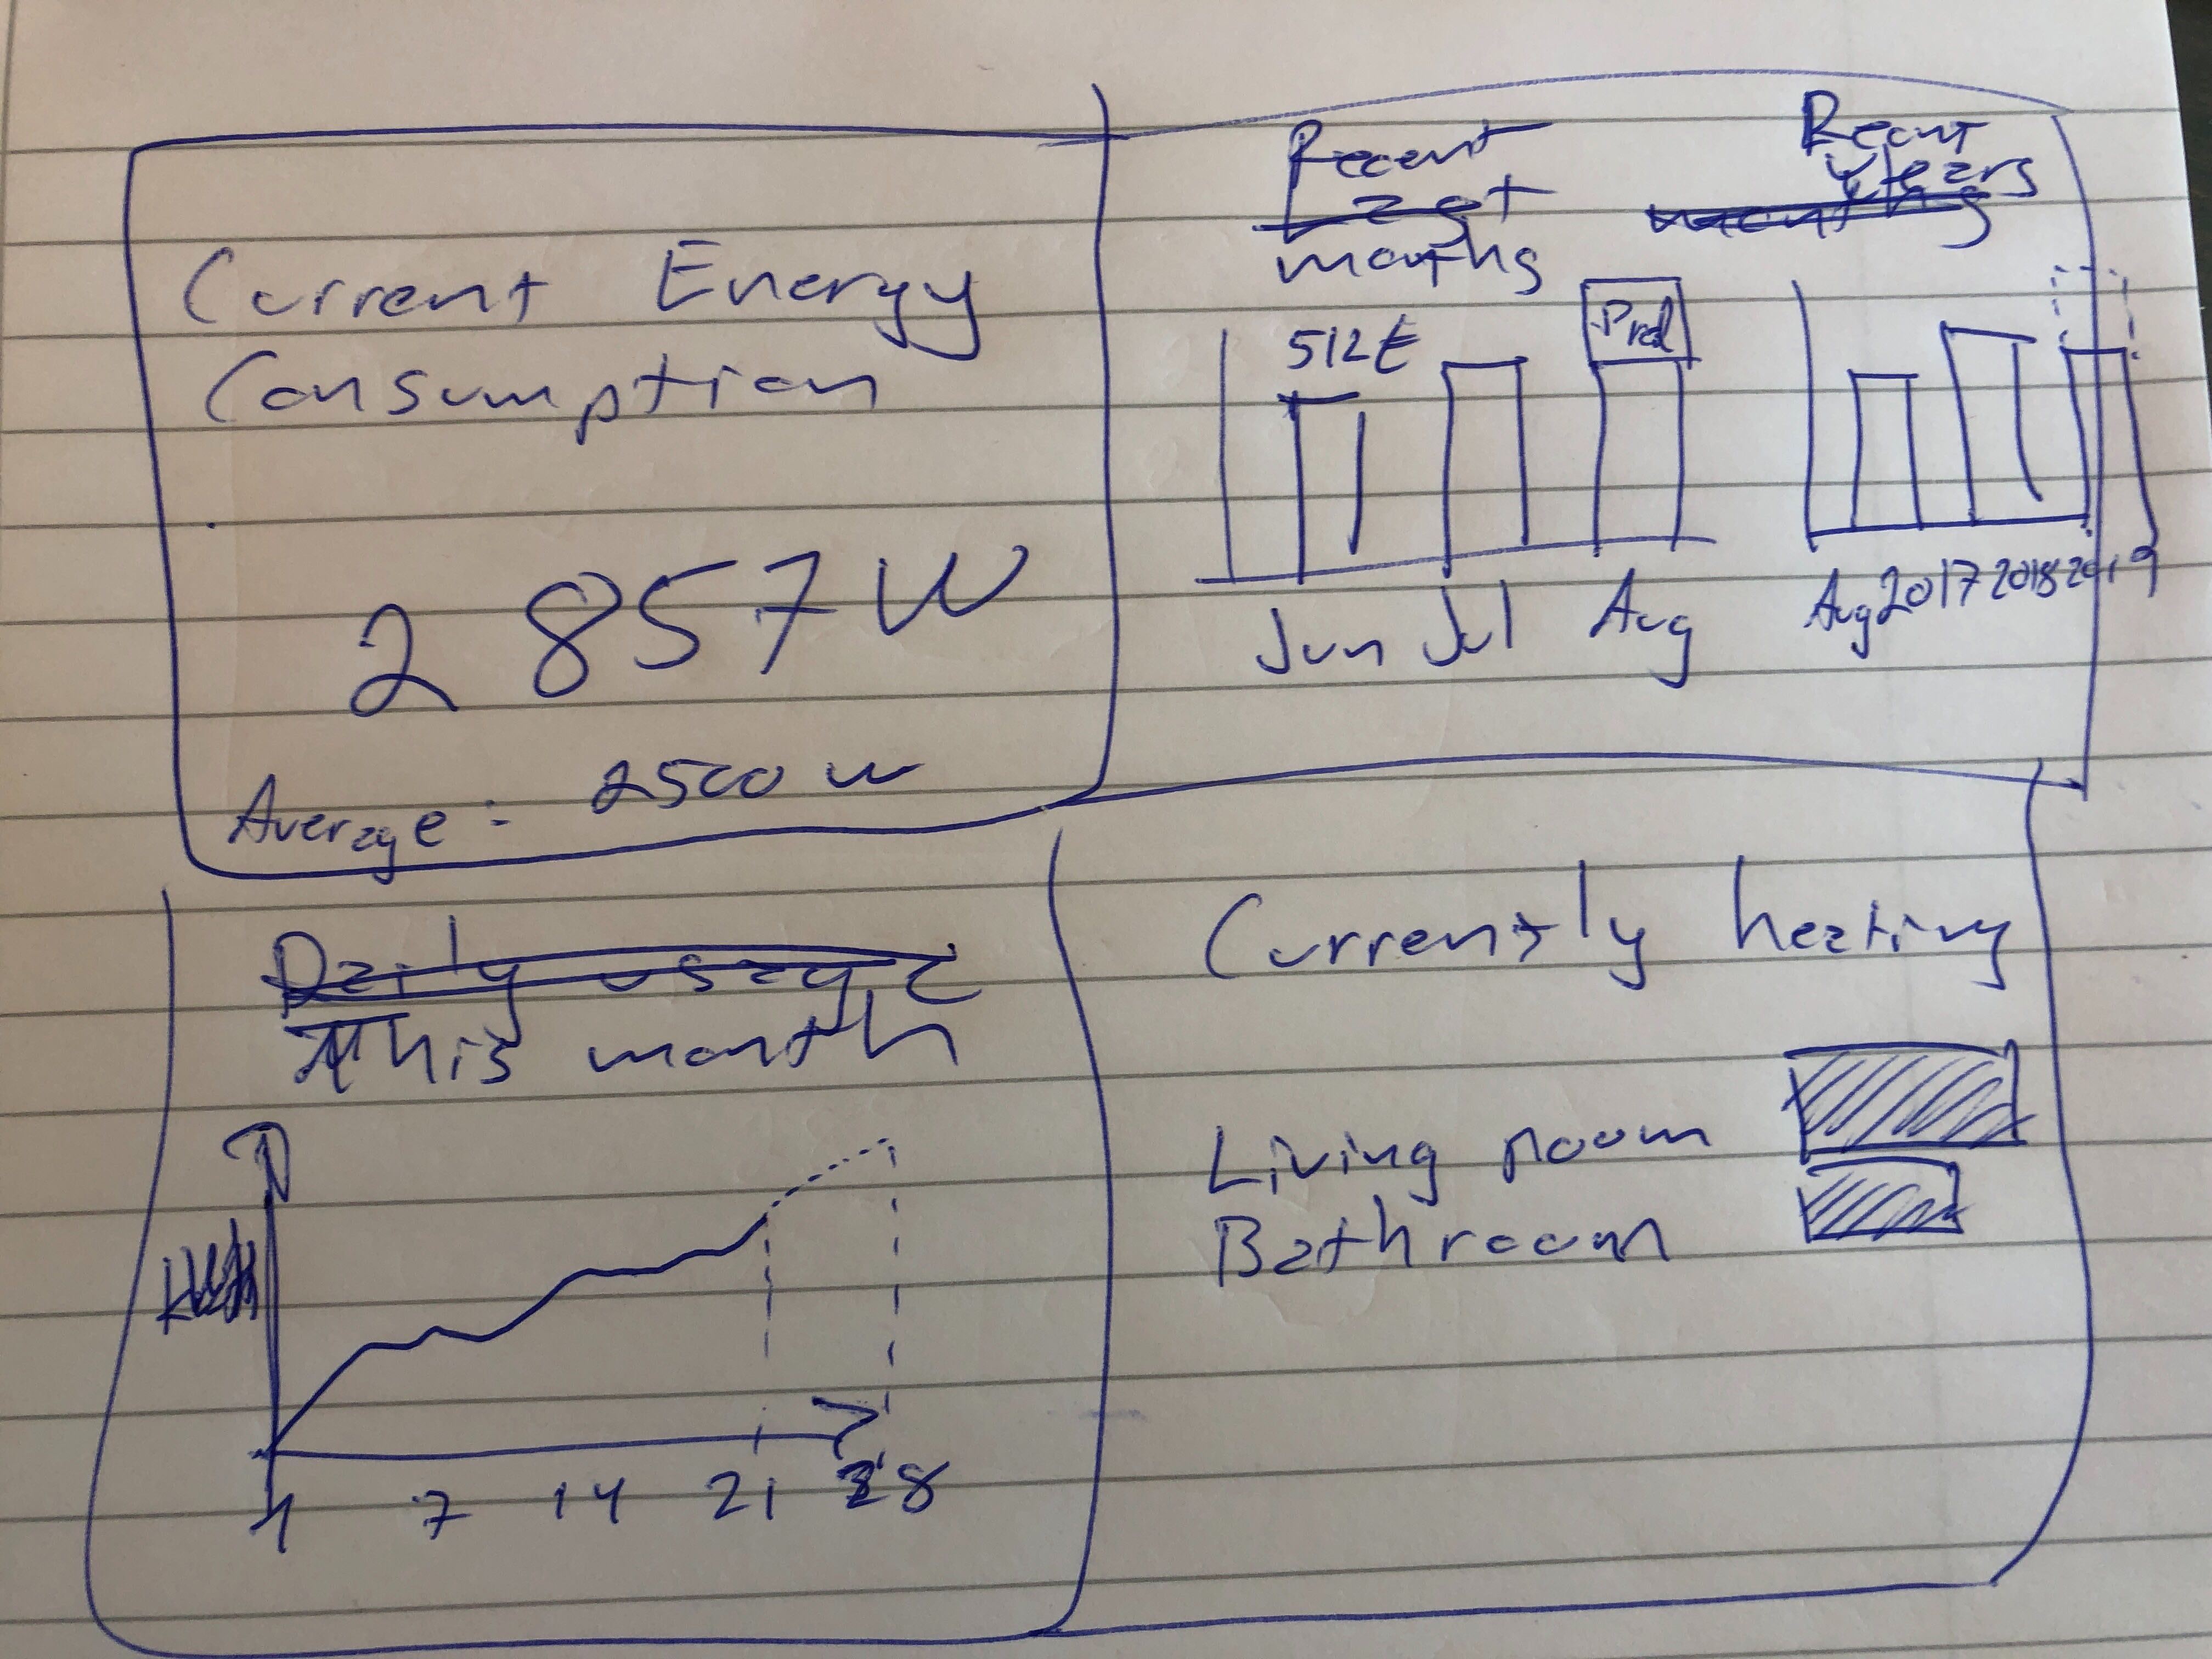 Current Energy
Consumption
2 857 W
Average: 2500 W
Recent
Last
months
512€
Pred
Jun Jul Aug
Recent
years
months
Aug 2017 2018 2019
Daily usage
This month
1 7 14 21 28
Currently heating
Living room
Bathroom